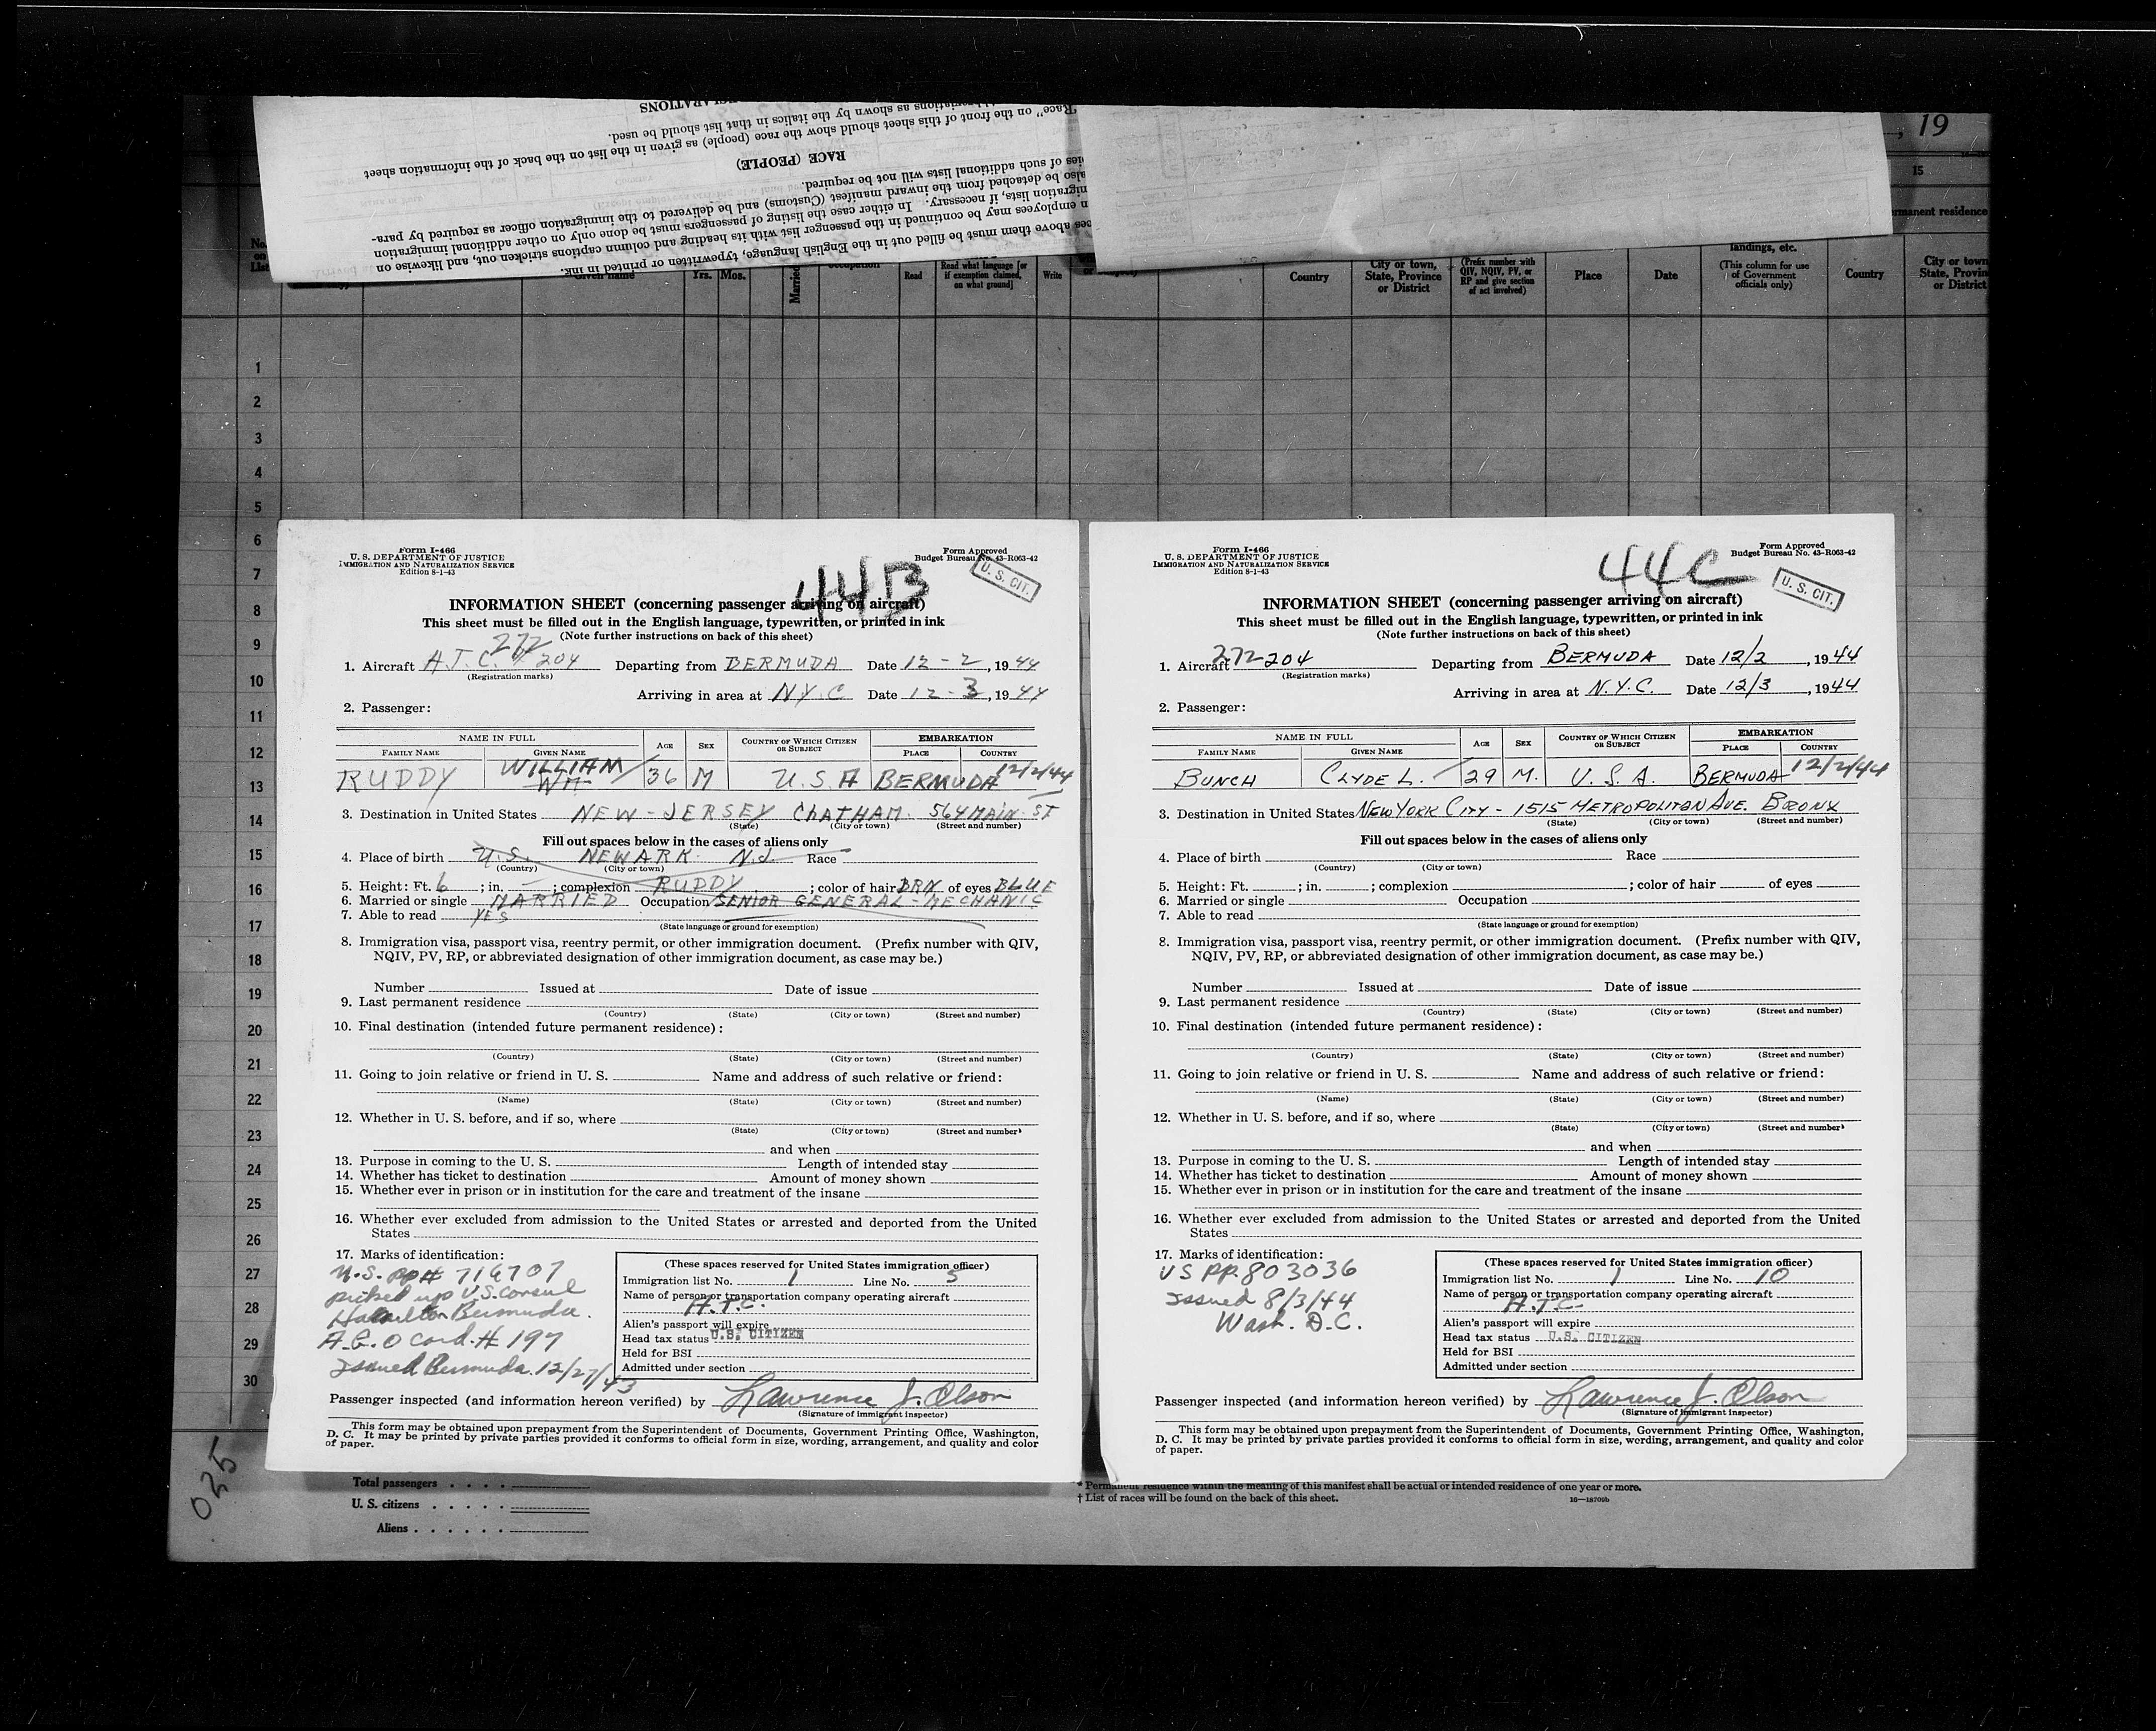 19
15
rmanent residence
CLARATIONS
riations as shown by the italics in that list should be used.
"Race" on the front of this sheet should show the race (people) as given in the list on the back of the information sheet
RACE (PEOPLE)
ies of such additional lists will not be required.
also be detached from the inward manifest (Customs) and be delivered to the immigration officer as required by para-
nigration lists, if necessary. In either case the listing of passengers must be done only on other additional immigration
n employees may be continued in the passenger list with its heading and column captions stricken out, and likewise on
ces above them must be filled out in the English language, typewritten or printed in ink.
No. on List
Given name
Yrs. Mos.
Married
Read
Read what language [or if exemption claimed, on what ground]
Write
Country
City or town, State, Province or District
(Prefix number with QIV, NQIV, PV, or RP and give section of act involved)
Place
Date
landings, etc.
(This column for use of Government officials only)
Country
City or town State, Provin or District
1
2
3
4
5
6
7
8
9
10
11
12
13
14
15
16
17
18
19
20
21
22
23
24
25
26
27
28
29
30
Form I-466
U. S. DEPARTMENT OF JUSTICE
IMMIGRATION AND NATURALIZATION SERVICE
Edition 8-1-43
Form Approved
Budget Bureau No. 43-R063-42
44B
U. S. CIT.
INFORMATION SHEET (concerning passenger arriving on aircraft)
This sheet must be filled out in the English language, typewritten, or printed in ink
(Note further instructions on back of this sheet)
272
1. Aircraft A.T.C. # 204 Departing from BERMUDA Date 12-2, 1944
(Registration marks)
Arriving in area at N.Y.C Date 12-3, 1944
2. Passenger:
NAME IN FULL AGE SEX COUNTRY OF WHICH CITIZEN OR SUBJECT EMBARKATION
FAMILY NAME GIVEN NAME PLACE COUNTRY
RUDDY WILLIAM WM 36 M U.S.A BERMUDA 12/2/44
3. Destination in United States NEW-JERSEY CHATHAM 564 MAIN ST
(State) (City or town) (Street and number)
Fill out spaces below in the cases of aliens only
4. Place of birth U.S. NEWARK N.J. Race
(Country) (City or town)
5. Height: Ft. 6; in. —; complexion RUDDY; color of hair BRN of eyes BLUE
6. Married or single MARRIED Occupation SENIOR GENERAL-MECHANIC
7. Able to read YES
(State language or ground for exemption)
8. Immigration visa, passport visa, reentry permit, or other immigration document. (Prefix number with QIV,
NQIV, PV, RP, or abbreviated designation of other immigration document, as case may be.)
Number Issued at Date of issue
9. Last permanent residence
(Country) (State) (City or town) (Street and number)
10. Final destination (intended future permanent residence):
(Country) (State) (City or town) (Street and number)
11. Going to join relative or friend in U. S. Name and address of such relative or friend:
(Name) (State) (City or town) (Street and number)
12. Whether in U. S. before, and if so, where
(State) (City or town) (Street and number)
and when
13. Purpose in coming to the U. S. Length of intended stay
14. Whether has ticket to destination Amount of money shown
15. Whether ever in prison or in institution for the care and treatment of the insane
16. Whether ever excluded from admission to the United States or arrested and deported from the United
States
17. Marks of identification:
U.S. pp# 716707
picked up U.S. Consul
Hamilton Bermuda.
A.G.O card # 197
Issued Bermuda 12/27/43
(These spaces reserved for United States immigration officer)
Immigration list No. 1 Line No. 5
Name of person or transportation company operating aircraft
A.T.C.
Alien's passport will expire
Head tax status U.S. CITIZEN
Held for BSI
Admitted under section
Passenger inspected (and information hereon verified) by Lawrence J. Olson
(Signature of immigrant inspector)
This form may be obtained upon prepayment from the Superintendent of Documents, Government Printing Office, Washington,
D. C. It may be printed by private parties provided it conforms to official form in size, wording, arrangement, and quality and color
of paper.
Form I-466
U. S. DEPARTMENT OF JUSTICE
IMMIGRATION AND NATURALIZATION SERVICE
Edition 8-1-43
Form Approved
Budget Bureau No. 43-R063-42
44C
U. S. CIT.
INFORMATION SHEET (concerning passenger arriving on aircraft)
This sheet must be filled out in the English language, typewritten, or printed in ink
(Note further instructions on back of this sheet)
1. Aircraft 272-204 Departing from BERMUDA Date 12/2, 1944
(Registration marks)
Arriving in area at N.Y.C. Date 12/3, 1944
2. Passenger:
NAME IN FULL AGE SEX COUNTRY OF WHICH CITIZEN OR SUBJECT EMBARKATION
FAMILY NAME GIVEN NAME PLACE COUNTRY
BUNCH CLYDE L. 29 M. U.S.A. BERMUDA 12/2/44
3. Destination in United States NEW YORK CITY - 1515 METROPOLITAN AVE. BRONX
(State) (City or town) (Street and number)
Fill out spaces below in the cases of aliens only
4. Place of birth Race
(Country) (City or town)
5. Height: Ft. ; in. ; complexion ; color of hair of eyes
6. Married or single Occupation
7. Able to read
(State language or ground for exemption)
8. Immigration visa, passport visa, reentry permit, or other immigration document. (Prefix number with QIV,
NQIV, PV, RP, or abbreviated designation of other immigration document, as case may be.)
Number Issued at Date of issue
9. Last permanent residence
(Country) (State) (City or town) (Street and number)
10. Final destination (intended future permanent residence):
(Country) (State) (City or town) (Street and number)
11. Going to join relative or friend in U. S. Name and address of such relative or friend:
(Name) (State) (City or town) (Street and number)
12. Whether in U. S. before, and if so, where
(State) (City or town) (Street and number)
and when
13. Purpose in coming to the U. S. Length of intended stay
14. Whether has ticket to destination Amount of money shown
15. Whether ever in prison or in institution for the care and treatment of the insane
16. Whether ever excluded from admission to the United States or arrested and deported from the United
States
17. Marks of identification:
US pp. 803036
Issued 8/3/44
Wash. D.C.
(These spaces reserved for United States immigration officer)
Immigration list No. 1 Line No. 10
Name of person or transportation company operating aircraft
A.T.C.
Alien's passport will expire
Head tax status U.S. CITIZEN
Held for BSI
Admitted under section
Passenger inspected (and information hereon verified) by Lawrence J. Olson
(Signature of immigrant inspector)
This form may be obtained upon prepayment from the Superintendent of Documents, Government Printing Office, Washington,
D. C. It may be printed by private parties provided it conforms to official form in size, wording, arrangement, and quality and color
of paper.
025
Total passengers
U. S. citizens
Aliens
* Permanent residence within the meaning of this manifest shall be actual or intended residence of one year or more.
† List of races will be found on the back of this sheet.
16—18709b